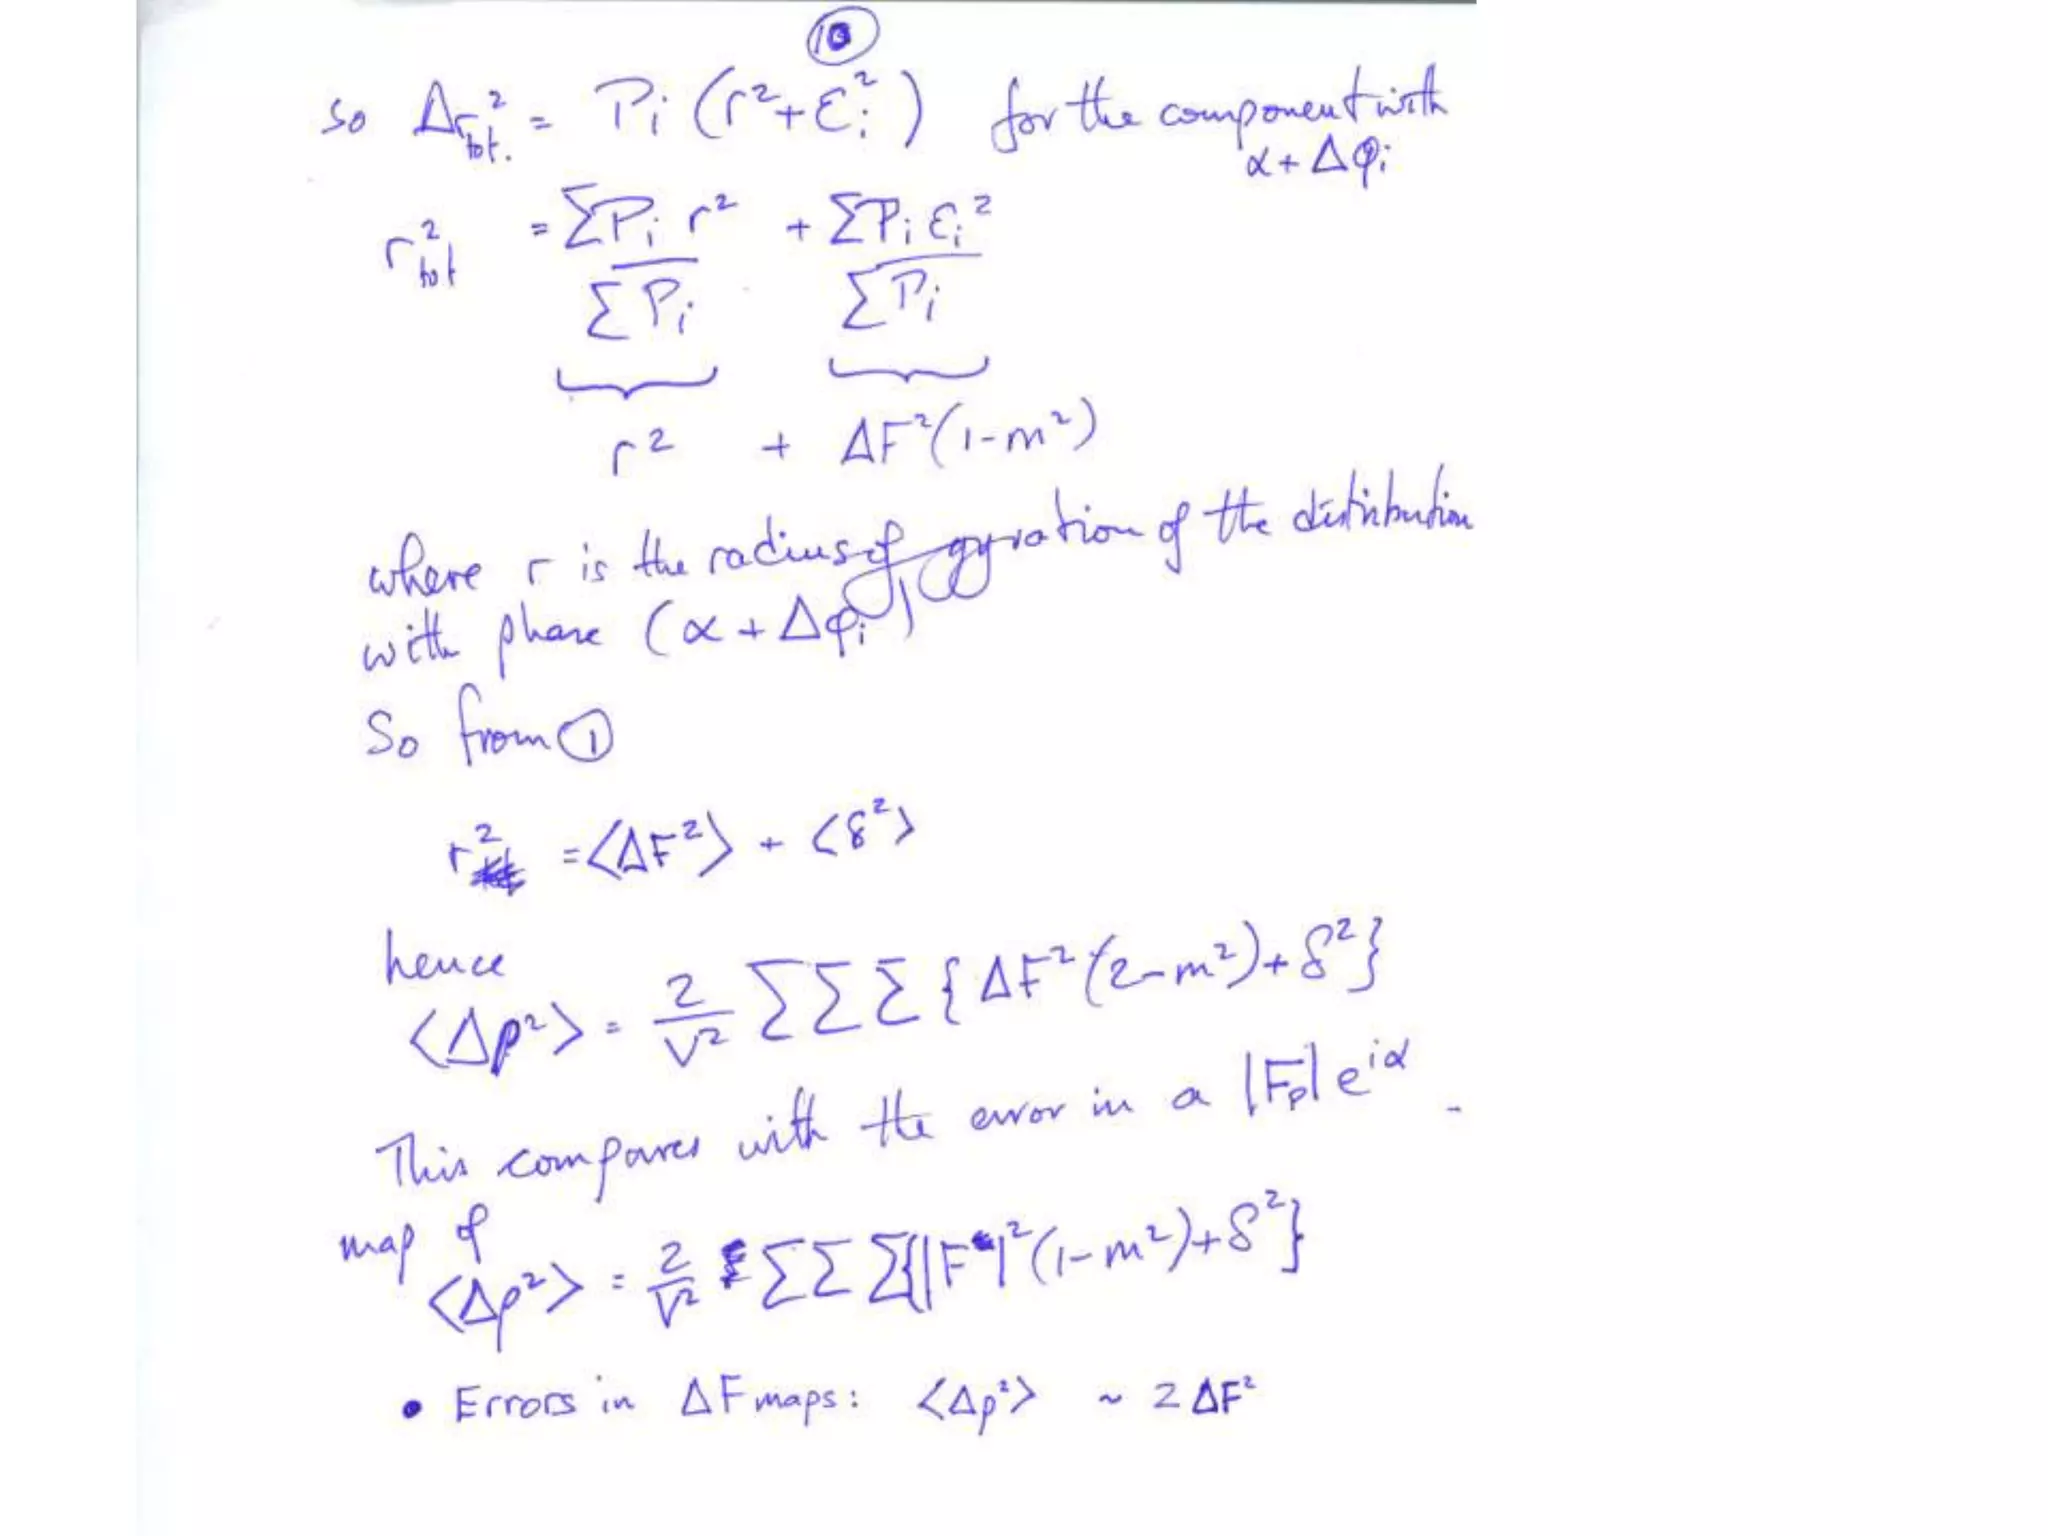 10
so Δr²tot. = Pi (r²+εi²) for the component with
α + Δφi
r²tot = ΣPi r² + ΣPi εi²
ΣPi ΣPi
r² + ΔF²(1-m²)
where r is the radius of gyration of the distribution
with phase (α + Δφi)
So from ①
r² = <ΔF²> + <δ²>
hence
<Δρ²> = 2/V² ΣΣΣ{ΔF²(2-m²)+δ²}
This compares with the error in a |Fp|e^iα
map of
<Δρ²> = 2/V² ΣΣΣ{|F|²(1-m²)+δ²}
• Errors in ΔF maps: <Δρ²> ~ 2ΔF²